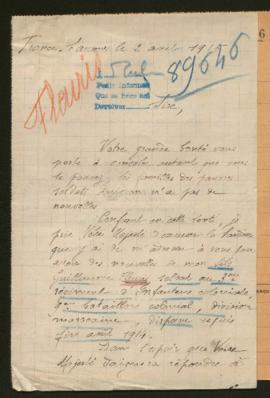 France, le 2 avril 191
89646
Pedir informes
Devolver
Sire,
Votre grande bonté vous
porte à consoler autant que vous
le pouvez les familles des pauvres
soldats dont on n'a pas de
nouvelles
Confiant en cette bonté, je
prie Votre Majesté d'excuser la hardiesse
que j'ai de m'adresser à vous pour
avoir des nouvelles de mon fils
Guillaume soldat au 2me
régiment d'infanterie coloniale,
bataillon colonial, division
marocaine, disparu depuis
1914.
Dans l'espoir que Votre
Majesté daignera répondre à